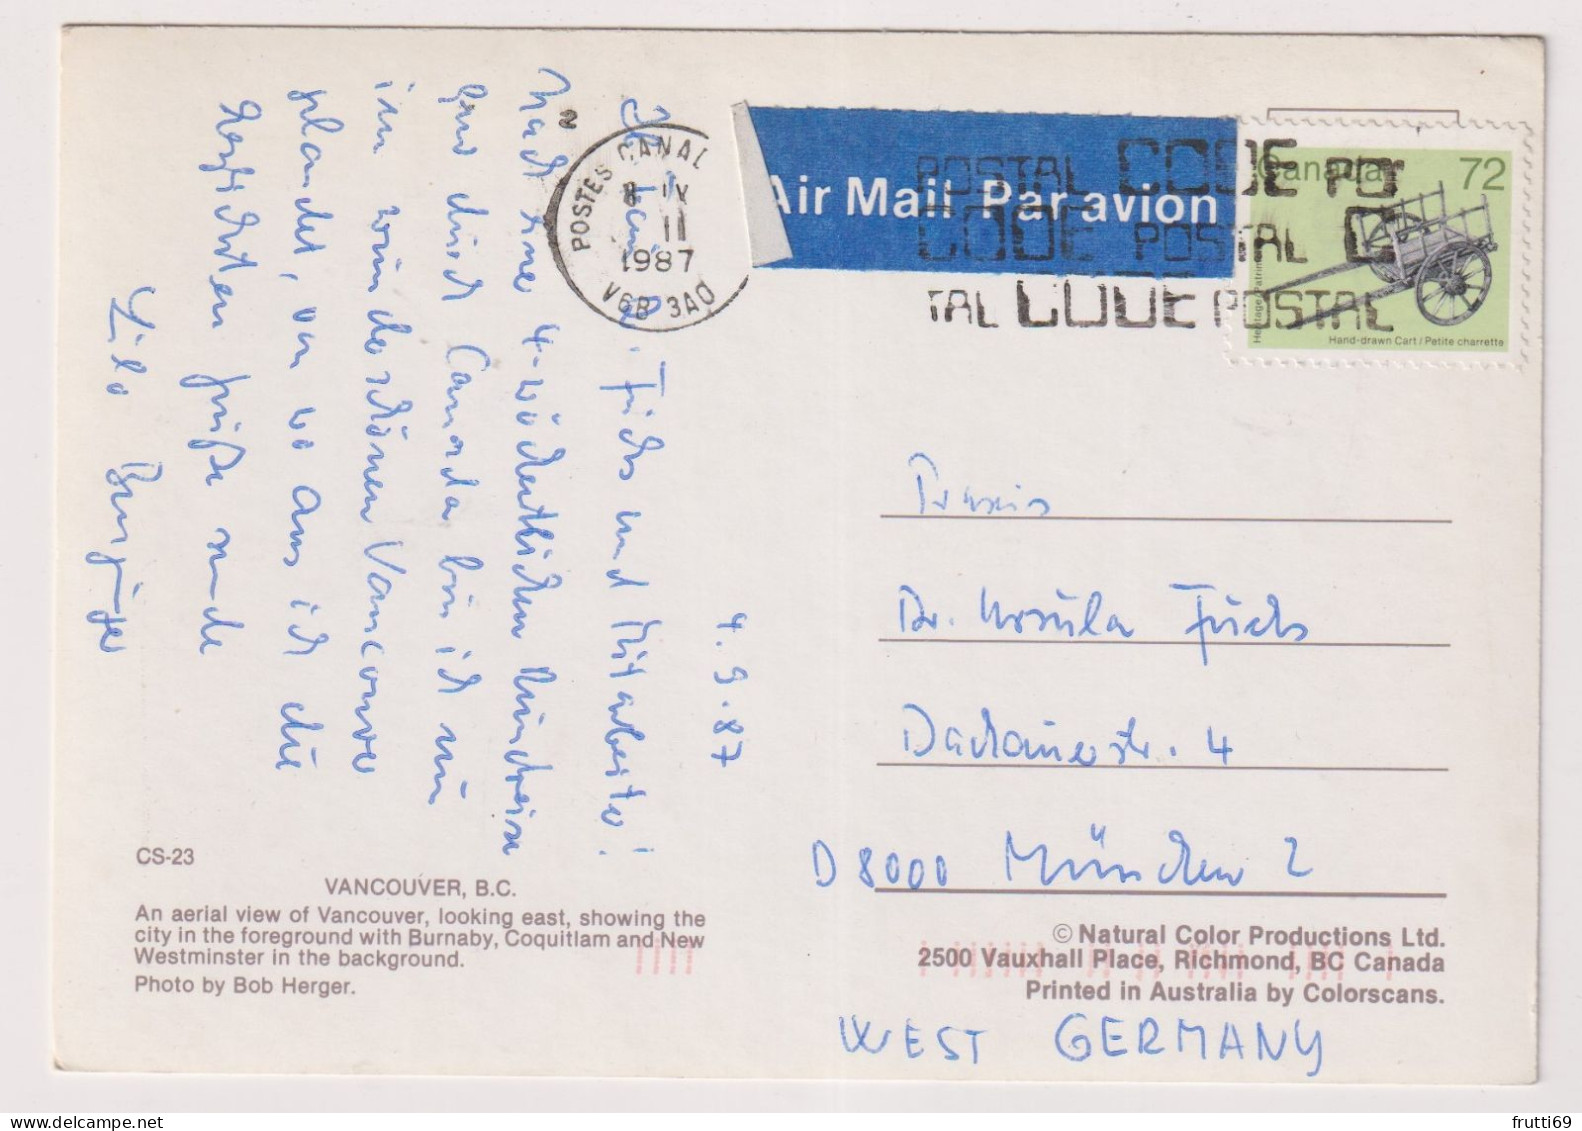 4.9.87
Fuchs und Mitarbeiter!
Nach einer 4-wöchentlichen Rundreise
quer durch Canada bin ich nun
im wunderschönen Vancouver
gelandet, von wo aus ich die
herzlichsten Grüße sende
Lilo
CS-23
VANCOUVER, B.C.
An aerial view of Vancouver, looking east, showing the
city in the foreground with Burnaby, Coquitlam and New
Westminster in the background.
Photo by Bob Herger.
2
POSTES CANADA
8 IX
11
1987
V6B 3A0
Air Mail Par avion
POSTAL CODE POS
CODE POSTAL C
TAL CODE POSTAL
Canada 72
Heritage Patrimoine
Hand-drawn Cart / Petite charrette
Praxis
Dr. Ursula Fuchs
Dachauerstr. 4
D 8000 München 2
WEST GERMANY
© Natural Color Productions Ltd.
2500 Vauxhall Place, Richmond, BC Canada
Printed in Australia by Colorscans.
frutti69